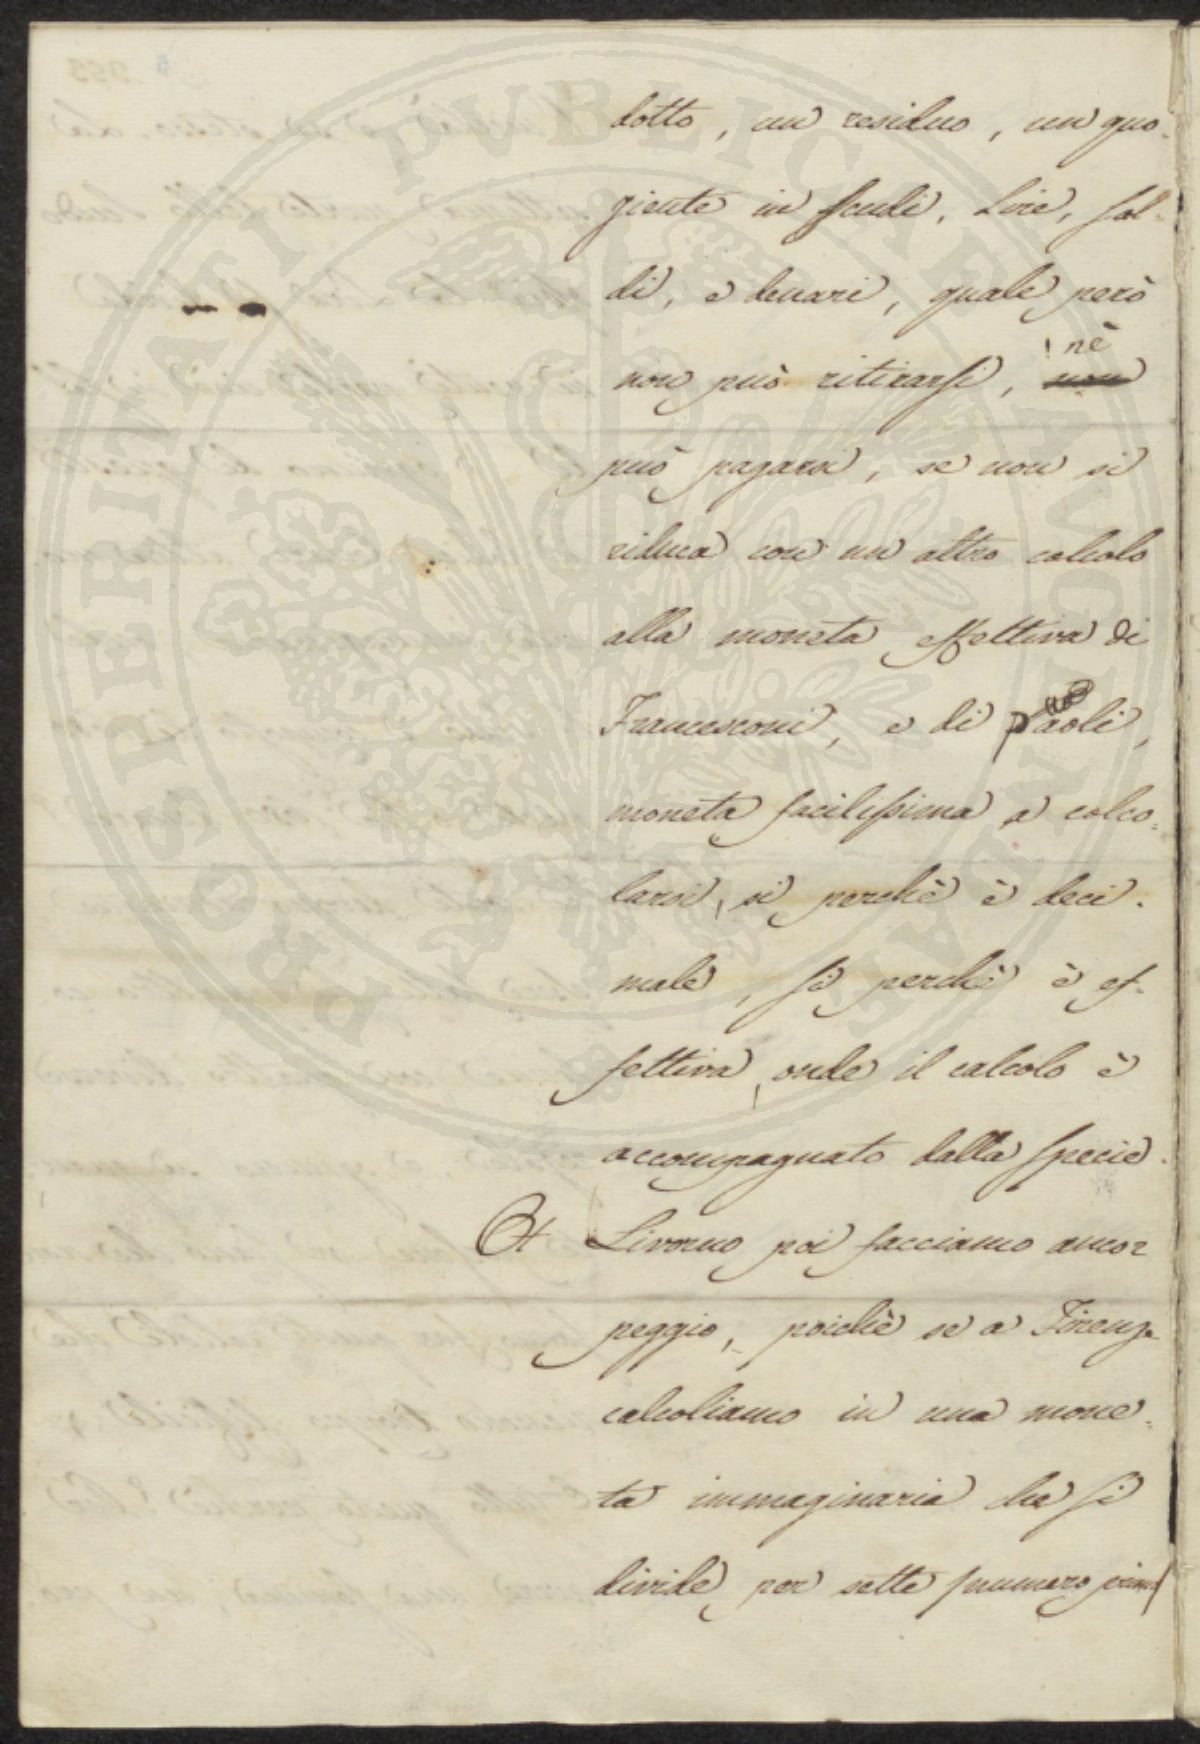 dotto, un residuo, un quo-
ziente in scudi, Lire, sol-
di, e denari, quale però
non può ritirarsi, nè
non
può pagarsi, se non si
riduca con un altro calcolo
alla moneta effettiva di
Francesconi, e di Paoli,
moneta facilissima a calco=
larsi, si perchè è deci-
male, si perchè è ef-
fettiva, onde il calcolo è
accompagnato dalla specie.
A Livorno poi facciamo ancor
peggio, poichè se a Firenze
calcoliamo in una mone=
ta immaginaria che si
divide per sette (numero primo)
PROSPERITATI PVBLICAE AVGENDAE